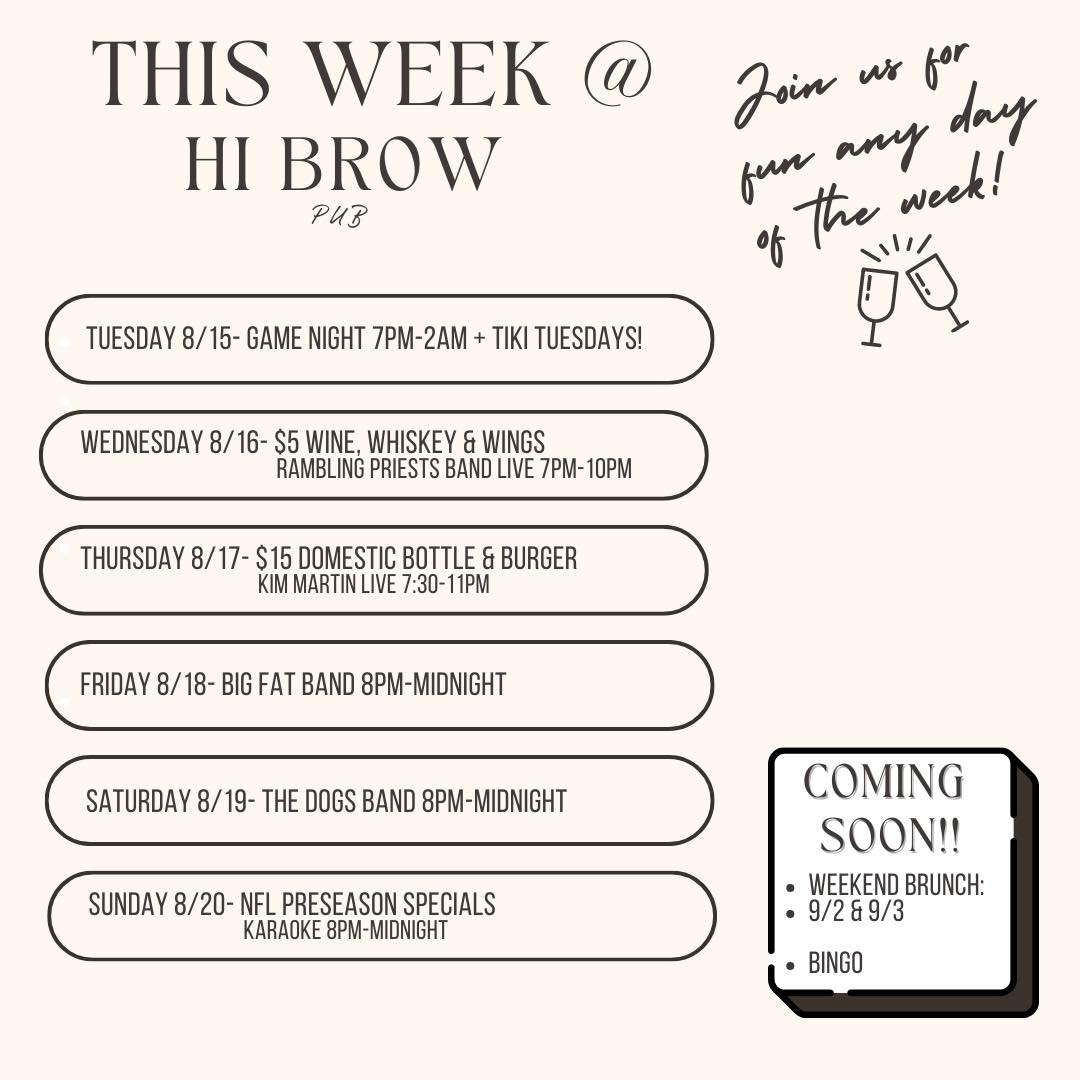 THIS WEEK @
HI BROW
PUB
Join us for
fun any day
of the week!
TUESDAY 8/15- GAME NIGHT 7PM-2AM + TIKI TUESDAYS!
WEDNESDAY 8/16- $5 WINE, WHISKEY & WINGS
RAMBLING PRIESTS BAND LIVE 7PM-10PM
THURSDAY 8/17- $15 DOMESTIC BOTTLE & BURGER
KIM MARTIN LIVE 7:30-11PM
FRIDAY 8/18- BIG FAT BAND 8PM-MIDNIGHT
SATURDAY 8/19- THE DOGS BAND 8PM-MIDNIGHT
SUNDAY 8/20- NFL PRESEASON SPECIALS
KARAOKE 8PM-MIDNIGHT
COMING
SOON!!
• WEEKEND BRUNCH:
• 9/2 & 9/3
• BINGO